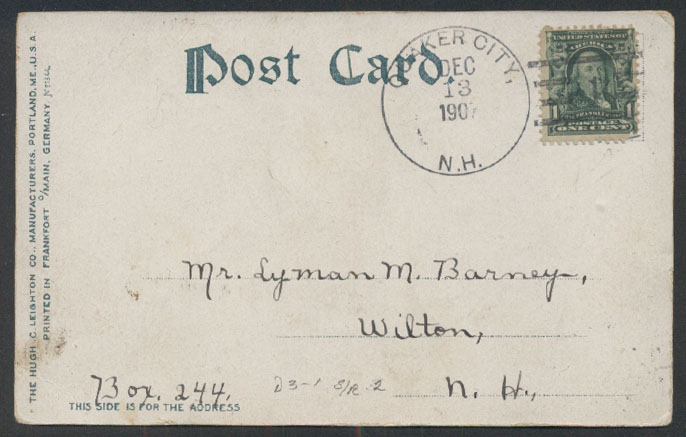 Post Card.
QUAKER CITY,
DEC
13
1907
N.H.
UNITED STATES OF
AMERICA
1 1
POSTAGE
ONE CENT
THE HUGH C. LEIGHTON CO., MANUFACTURERS, PORTLAND, ME., U.S.A.
PRINTED IN FRANKFORT O/MAIN, GERMANY
Mr. Lyman M. Barney,
Wilton,
N. H.,
Box. 244.
D3-1 S/R-2
THIS SIDE IS FOR THE ADDRESS